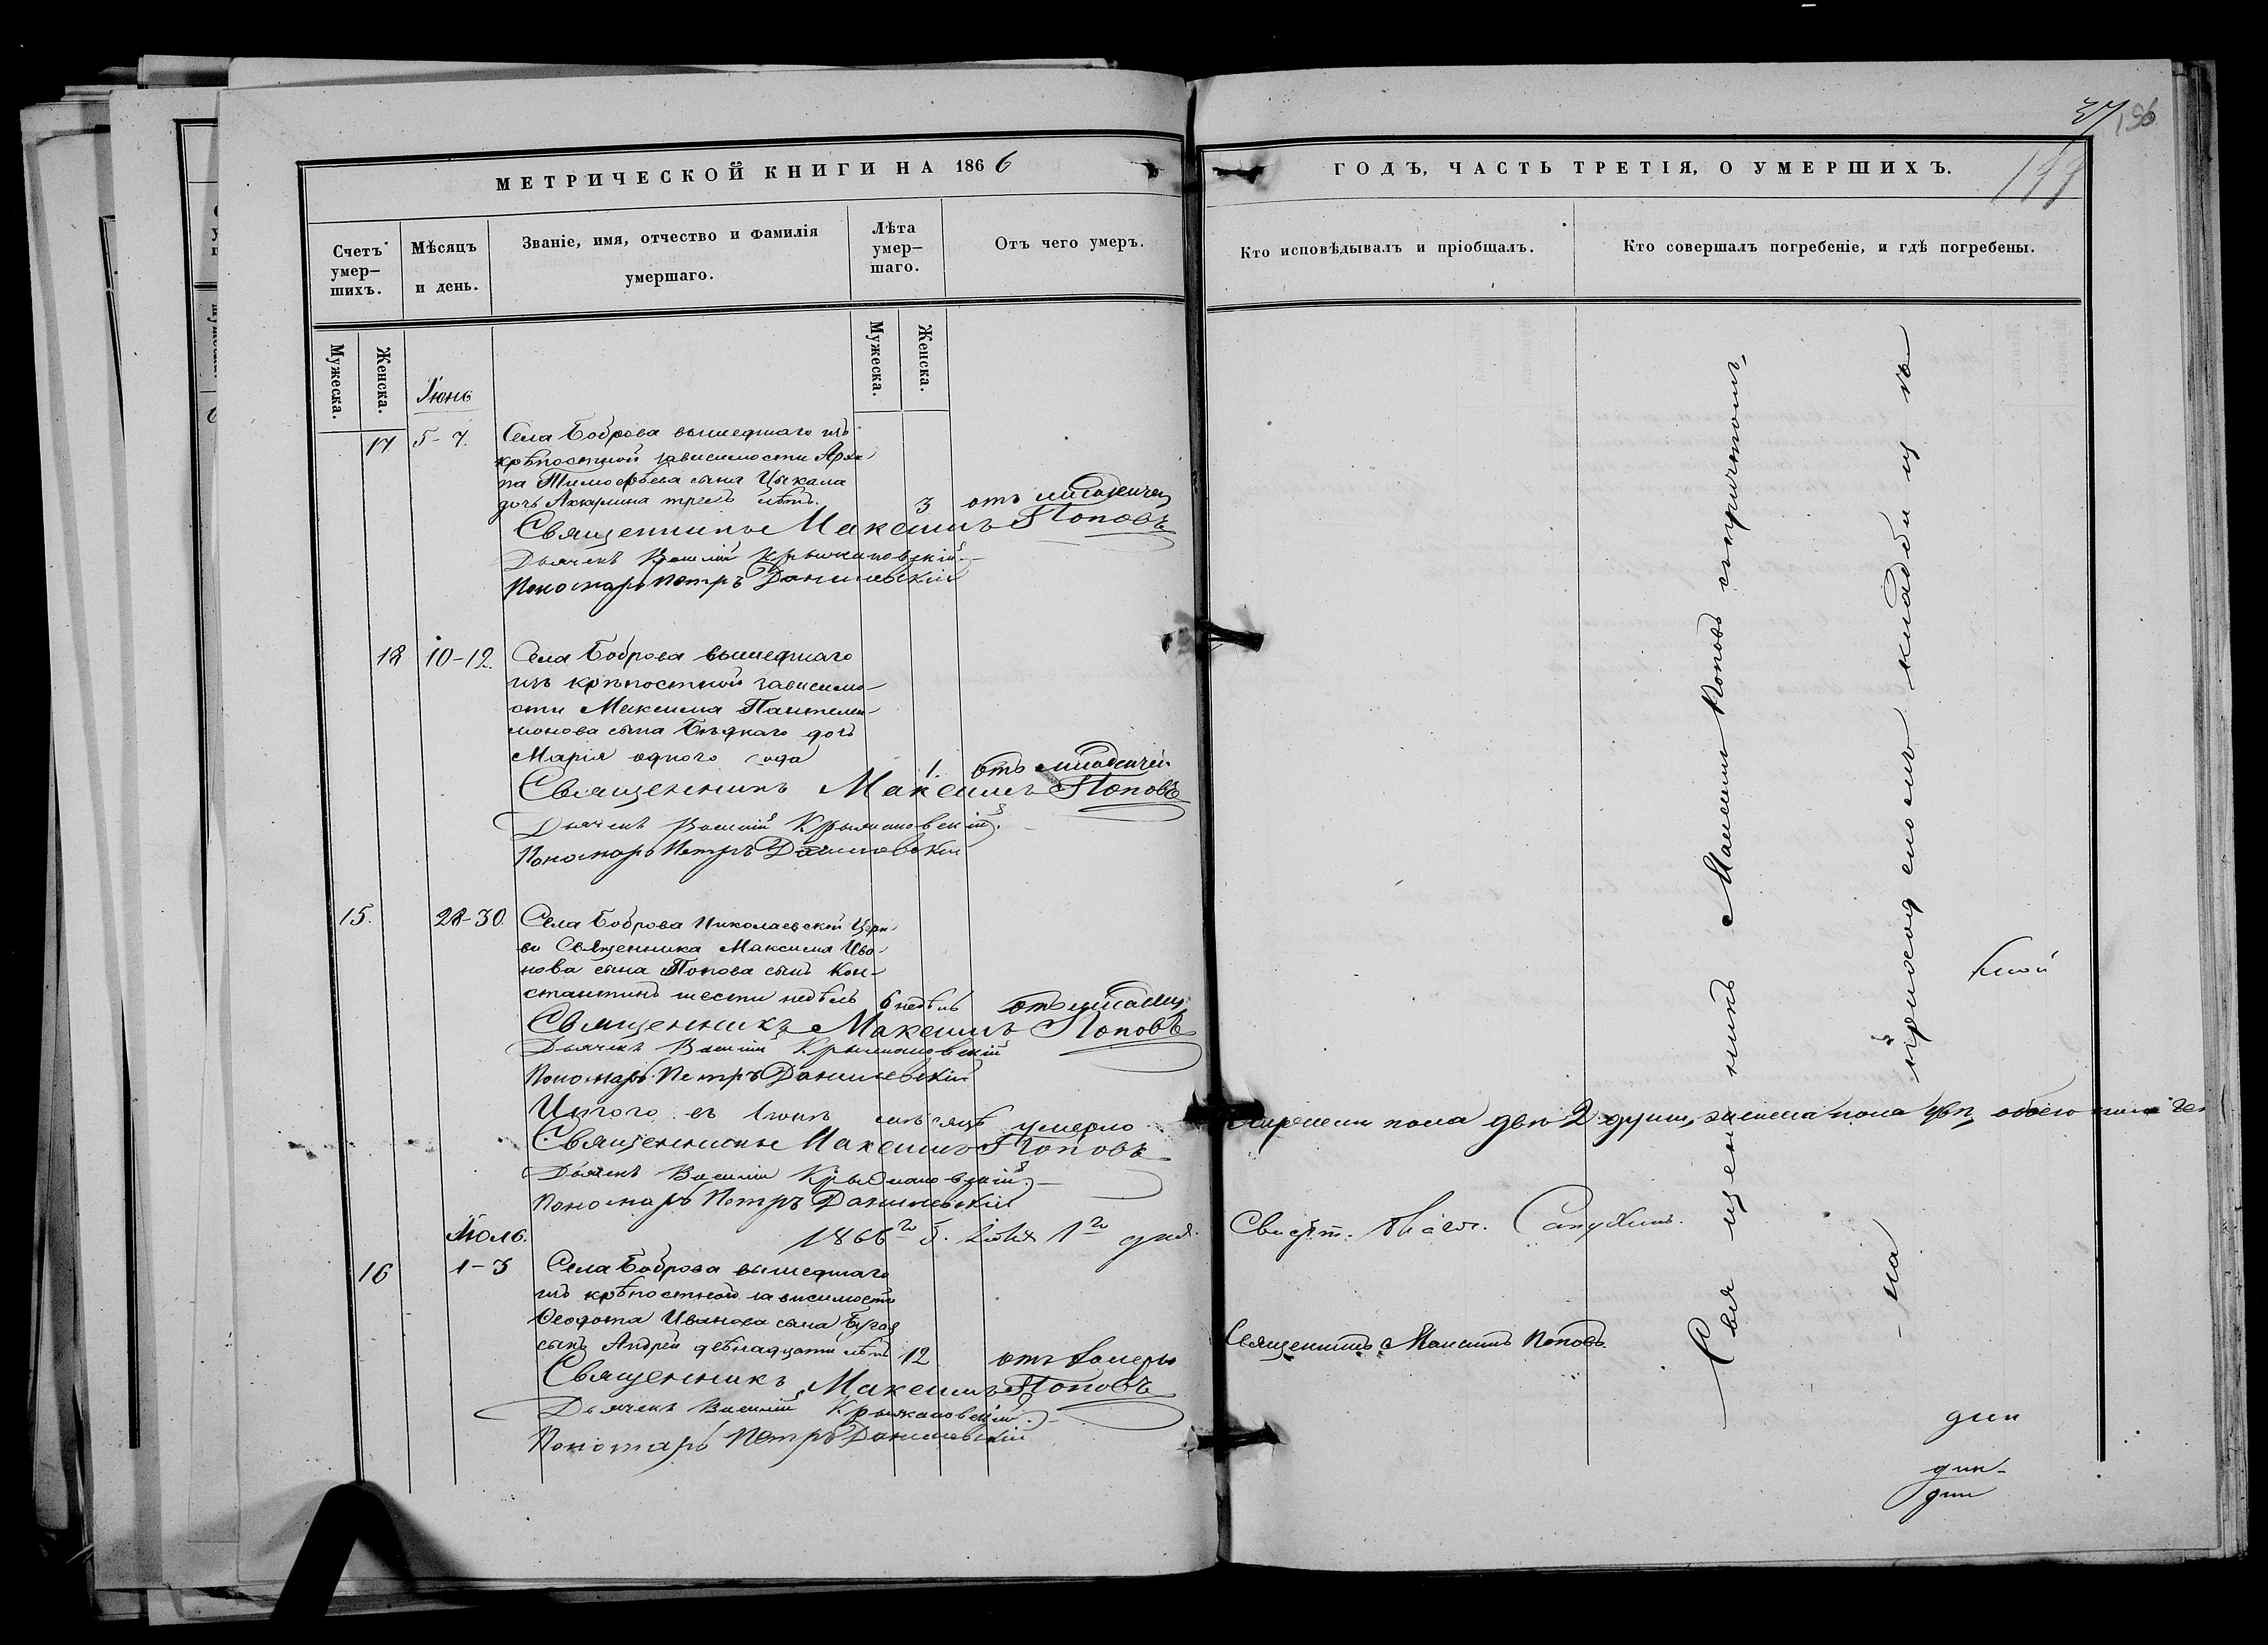 37
196
МЕТРИЧЕСКОЙ КНИГИ НА 1866
Счетъ умер-шихъ.
Мѣсяцъ и день.
Званіе, имя, отчество и фамилія умершаго.
Лѣта умер-шаго.
Отъ чего умеръ.
Мужеска.
Женска.
Мужеска.
Женска.
Іюнь
17 5-7. Села Боброва вышедшаго изъ
крѣпостной зависимости Архи
па Тимофѣева сына Цыкала
дочь Акилина трехъ лѣтъ. 3 отъ младенчес
Священникъ Максимъ Поповъ
Дьячекъ Василій Крыжановскій.
Пономарь Петръ Данилевскій
18 10-12. Села Боброва вышедшаго
изъ крѣпостной зависимо-
сти Максима Пантелеи-
монова сына Бѣдкаго дочь
Марія одного года 1. отъ младенчес
Священникъ Максимъ Поповъ
Дьячекъ Василій Крыжановскій.
Пономарь Петръ Данилевскій
15. 28-30. Села Боброва Николаевской Церк-
ви Священника Максима Ива-
нова сына Попова сынъ Кон-
стантинъ шести недѣль 6 недѣль отъ младен
Священникъ Максимъ Поповъ
Дьячекъ Василій Крыжановскій
Пономарь Петръ Данилевскій
Итого въ Іюнѣ мѣсяцѣ умерло
Священникъ Максимъ Поповъ
Дьячекъ Василій Крыжановскій.
Пономарь Петръ Данилевскій
1866го г. Іюля 1го дня.
Іюль.
16 1-3 Села Боброва вышедшаго
изъ крѣпостной зависимости
Ѳеодота Иванова сына Бугая
сынъ Андрей двѣнадцати лѣтъ 12 отъ холеры
Священникъ Максимъ Поповъ
Дьячекъ Василій Крыжановскій.
Пономарь Петръ Данилевскій
ГОДЪ, ЧАСТЬ ТРЕТІЯ, О УМЕРШИХЪ.
Кто исповѣдывалъ и пріобщалъ.
Кто совершалъ погребеніе, и гдѣ погребены.
Священникъ Максимъ Поповъ съ причтомъ,
на приходскомъ кладби щ ѣ
пола двѣ 2 души, женска пола двѣ, обоего пола
Свидѣт.
Священникъ Максимъ Поповъ.